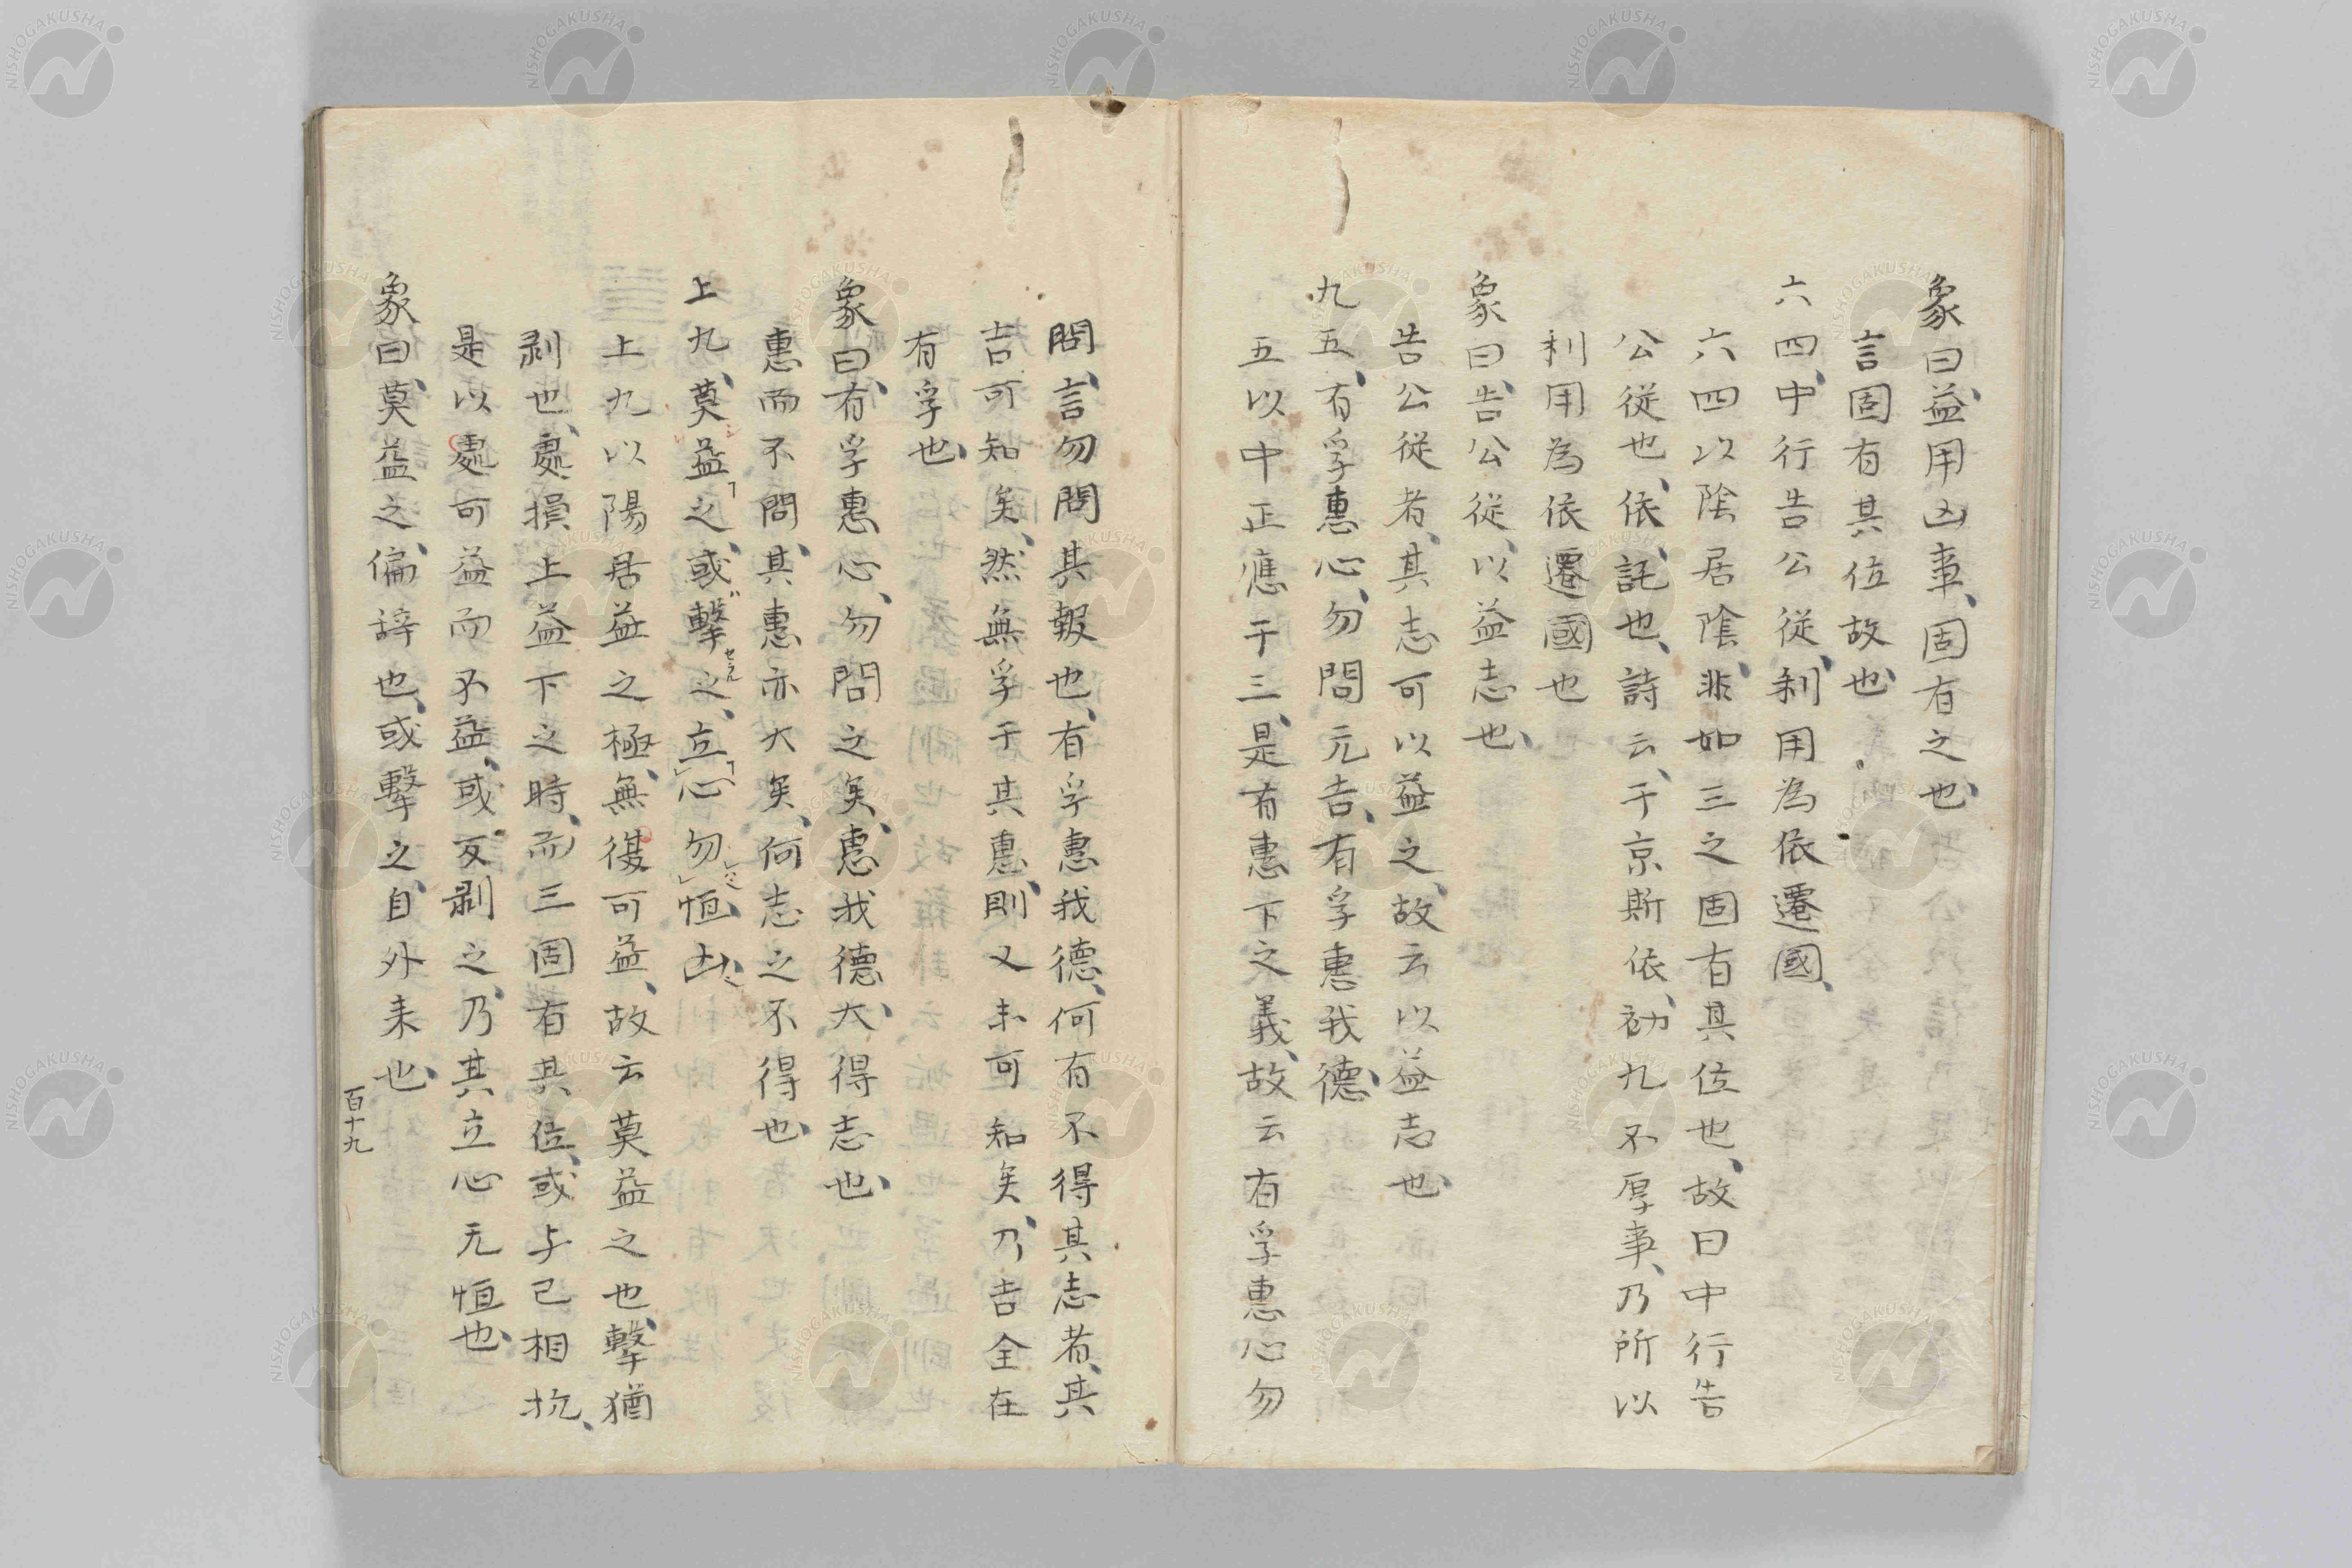 象曰、益用凶事、固有之也、
言固有其位故也、
六四、中行告公従、利用為依遷國、
六四以陰居陰、非如三之固有其位也、故曰中行告
公従也、依、託也、詩云、于京斯依、初九不厚事、乃所以
利用為依遷國也
象曰、告公従、以益志也、
告公従者、其志可以益之、故云以益志也、
九五、有孚惠心、勿問元吉、有孚惠我德、
五以中正應于三、是有惠下之義、故云有孚惠心勿
問、言勿問其報也、有孚惠我德、何有不得其志者、其
吉可知矣、然無孚于其惠、則又未可知矣、乃吉全在
有孚也、
象曰、有孚惠心、勿問之矣、惠我德、大得志也、
惠而不問、其惠亦大矣、何志之不得也、
上九、莫益之、或擊之、立心勿恒、凶、
上九以陽居益之極、無復可益、故云莫益之也、擊猶
剥也、處損上益下之時、而三固有其位、或与己相抗、
是以處可益而不益、或反剥之、乃其立心无恒也、
象曰、莫益之、偏辞也、或擊之、自外来也、
百十九